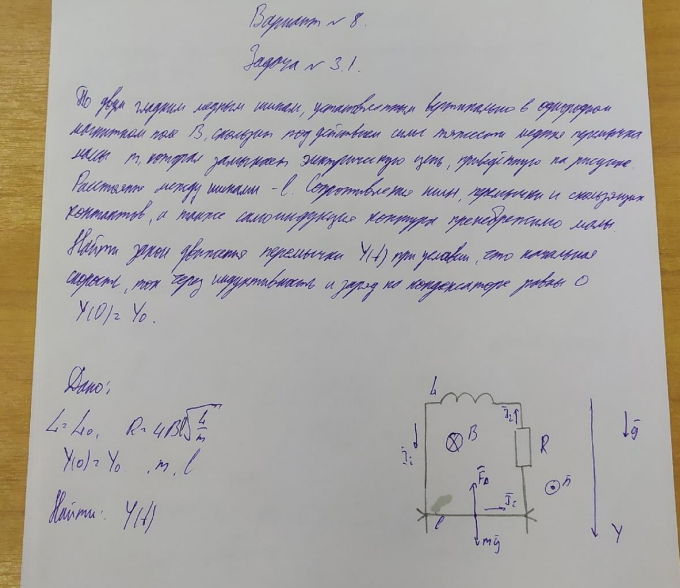 Вариант № 8.
Задача № 3.1.
По двум гладким медным шинам, установленным вертикально в однородном
магнитном поле B, скользит под действием силы тяжести медная перемычка
массы m, которая замыкает электрическую цепь, приведённую на рисунке.
Расстояние между шинами - l. Сопротивление шины, перемычки и скользящих
контактов, а также самоиндукция контура пренебрежимо малы
Найти закон движения перемычки Y(t) при условии, что начальная
скорость, ток через индуктивность и заряд на конденсаторе равны 0
Y(0)= Y₀.
Дано:
L=L₀, R=4Bl√(L/m)
Y(0)=Y₀ , m, l
Найти: Y(t)
L
J_i
B
J_i
R
n
g
F_A
J_i
l
mg
Y